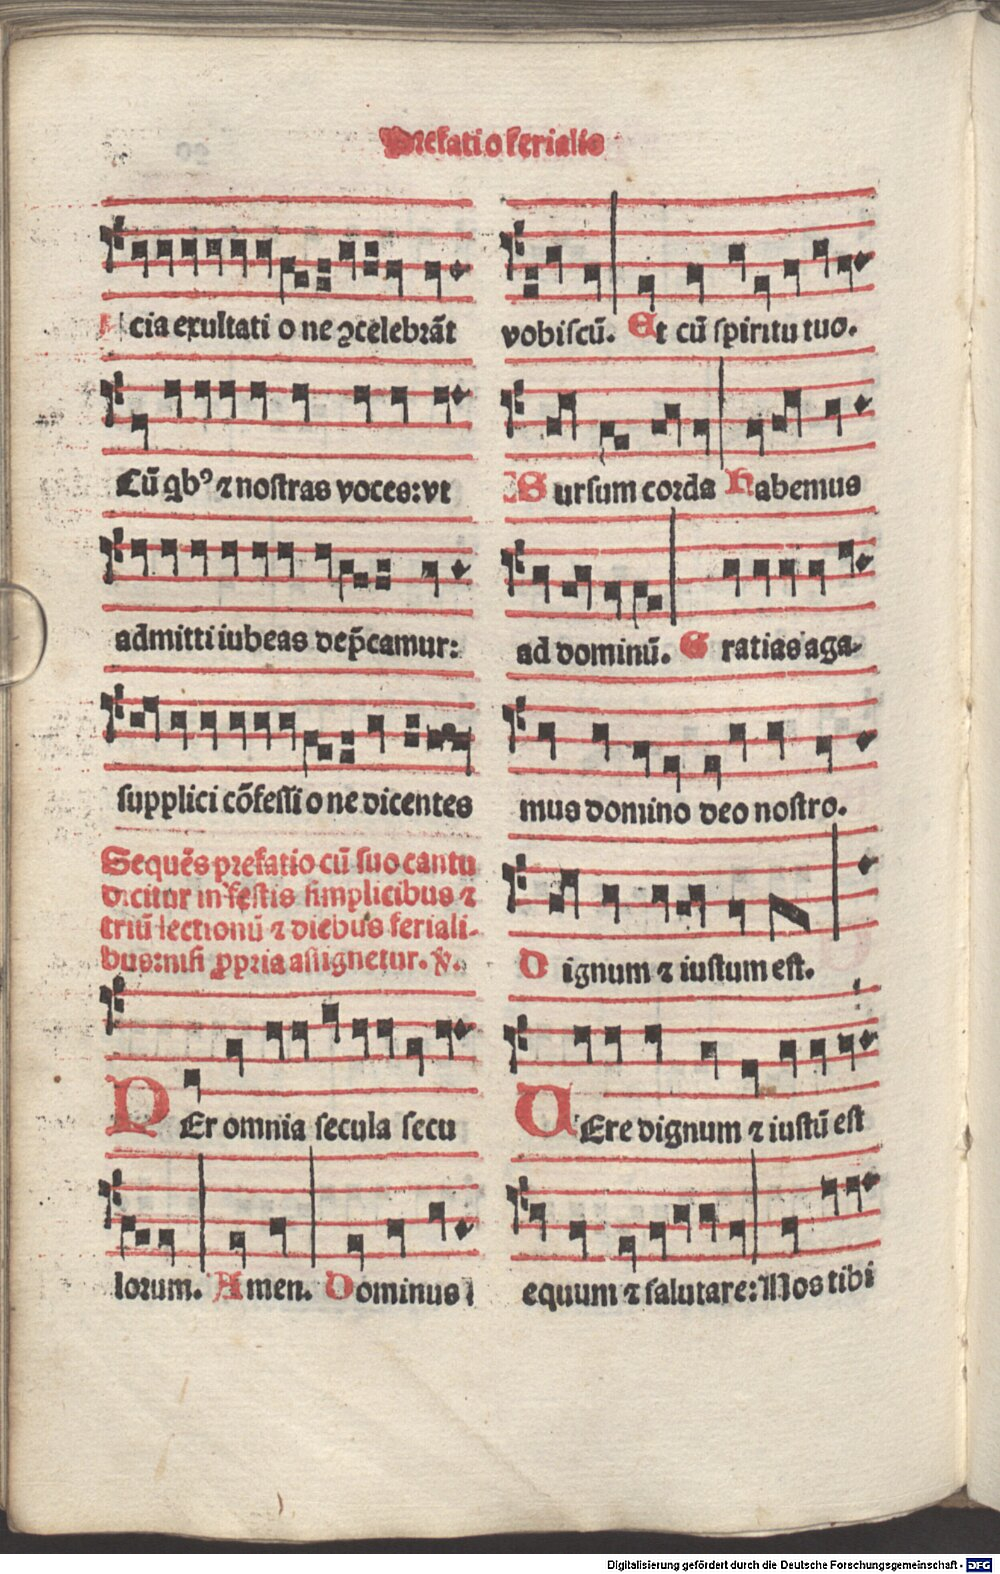 Prefatio ferialis
cia exultati o ne ꝯcelebrãt
Cũ qb⁹ ⁊ nostras voces: vt
admitti iubeas dep̃camur:
supplici cõfessi o ne dicentes
Sequẽs prefatio cũ suo cantu
dicitur in festis simplicibus ⁊
triũ lectionũ ⁊ diebus feriali-
bus: nisi ꝓpria assignetur. ℣.
PEr omnia secula secu
lorum. Amen. Dominus
vobiscũ. Et cũ spiritu tuo.
Sursum corda Habemus
ad dominũ. Gratias aga-
mus domino deo nostro.
Dignum ⁊ iustum est.
VEre dignum ⁊ iustũ est
equum ⁊ salutare: Nos tibi
Digitalisierung gefördert durch die Deutsche Forschungsgemeinschaft - DFG